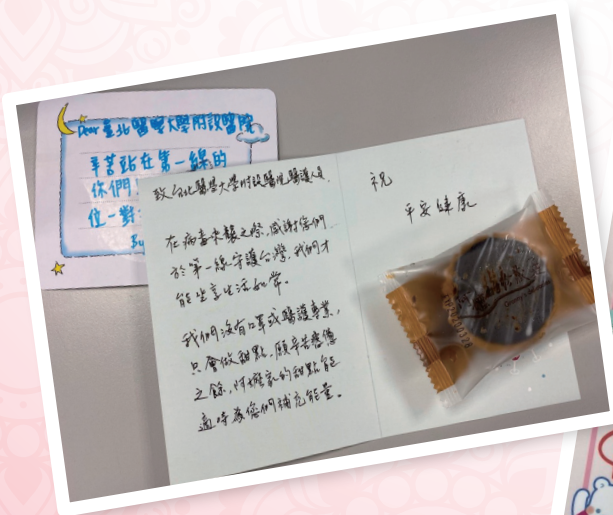 Dear 臺北醫學大學附設醫院
辛苦站在第一線的
你們
位一對
By
致台北醫學大學附設醫院醫護人員
在病毒來襲之際,感謝您們
於第一線守護台灣,我們才
能坐享生活如常。
我們沒有口罩或醫護專業,
只會做甜點,願辛苦疲憊
之餘,阿嬤家的甜點能
適時為您們補充能量。
祝
平安健康